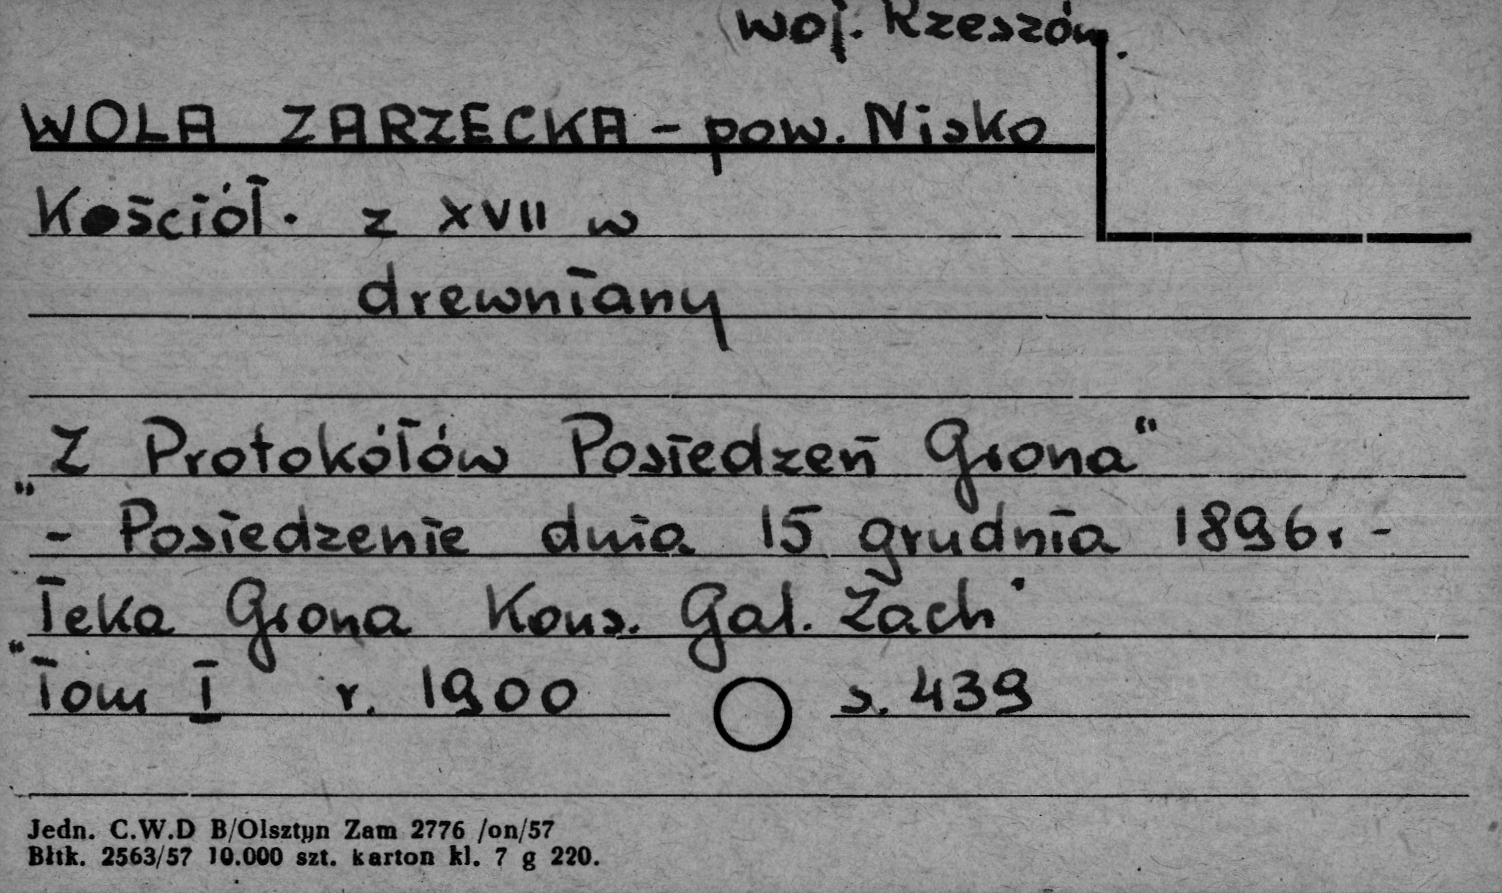 woj. Rzeszów.
WOLA ZARZECKA - pow. Nisko
Kościół. z XVII w
drewniany
Z Protokółów Posiedzeń Grona"
" - Posiedzenie dnia 15 grudnia 1896r -
Teka Grona Kons. Gal. Zach"
" Tom I r. 1900 s. 439
Jedn. C.W.D B/Olsztyn Zam 2776 /on/57
Błtk. 2563/57 10.000 szt. karton kl. 7 g 220.